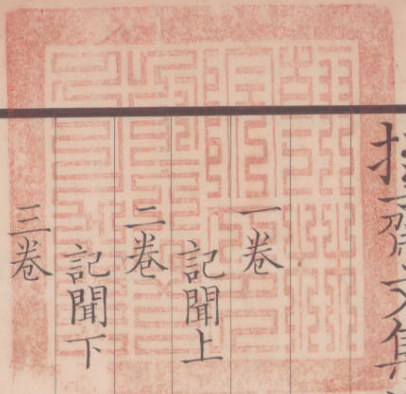 拙齋文集
一卷
記聞上
二卷
記聞下
三卷